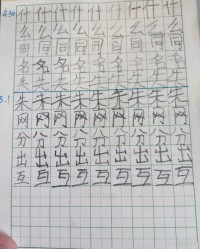 4.30 什什什什什什什什什
么么么么么么么么么
同同同同同同同同同
名名名名名名名名名
失失失失失失失失失
5.1 朱朱朱朱朱朱朱朱朱
网网网网网网网网网
分分分分分分分分分
出出出出出出出出出
互互互互互互互互互